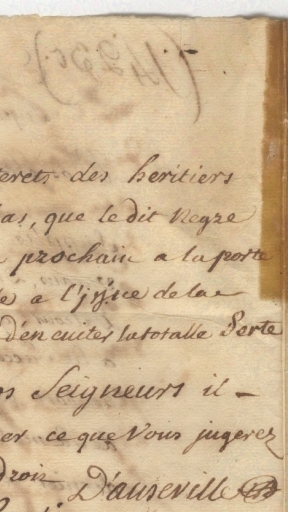 (4230)
terets des heritiers
as, que le dit Negre
prochain a la porte
e a l'issue de la
d'en eviter la totalle Perte
s Seigneurs il
er ce que Vous jugerez
Droit D'auseville